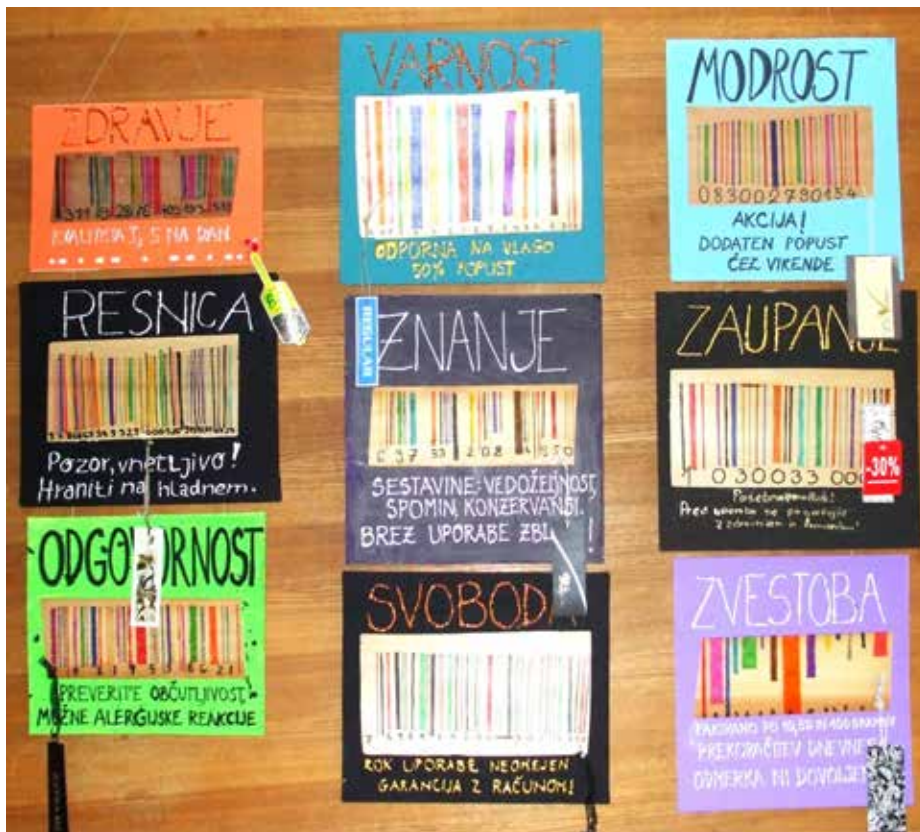 ZDRAVJE
5 NA DAN
RESNICA
Pozor, vnetljivo!
Hraniti na hladnem.
ODGOVORNOST
PREVERITE OBČUTLJIVOST,
MOŽNE ALERGIJSKE REAKCIJE
VARNOST
ODPORNA NA VLAGO
50% POPUST
REGULAR
ZNANJE
SESTAVINE: VEDOŽELJNOST,
SPOMIN, KONZERVANSI.
BREZ UPORABE ZBL !
SVOBODA
ROK UPORABE NEOMEJEN
GARANCIJA Z RAČUNOM!
MODROST
083002790154
AKCIJA!
DODATEN POPUST
ČEZ VIKENDE
ZAUPANJE
1 030033 00
-30%
Pred uporabo se
ZVESTOBA
PAKIRANO PO 10, 50 IN 100 GRAMOV
PREKORAČITEV DNEVNEGA
ODMERKA NI DOVOLJENA